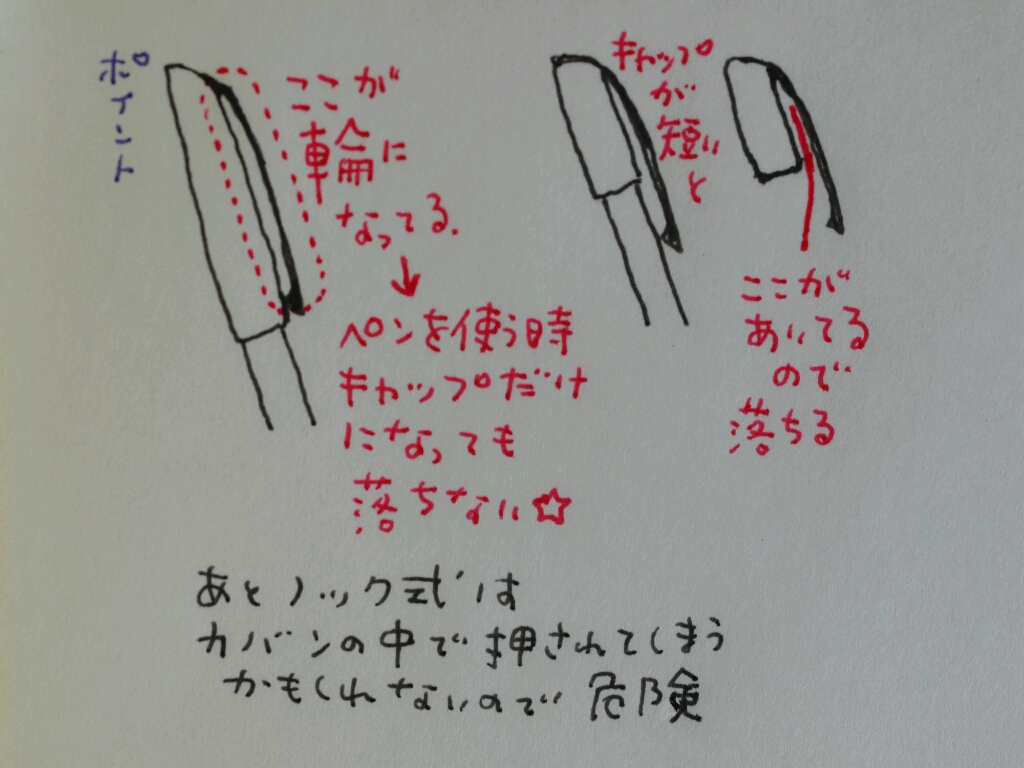 ポイント
ここが
車輪に
なってる.
ペンを使う時
キャップだけ
になっても
落ちない☆
キャップ
が
短い
と
ここが
あいてる
ので
落ちる
あとノック式は
カバンの中で押されてしまう
かもしれないので危険